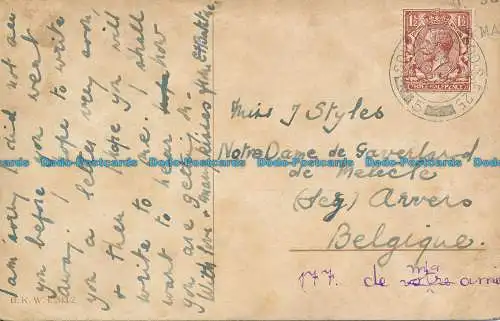 I am sorry I did not see
you before you went
away. I hope to write
you a letter very soon,
& then I hope you will
write to me. I shall
want to hear how
you are getting on.
With love & many kisses from
Miss J Styles
Notre Dame de Gaverland
de Melecle
(Seg) Anvers
Belgique.
177. de ma
amie
B.K.W.I.
Bado-Dodo